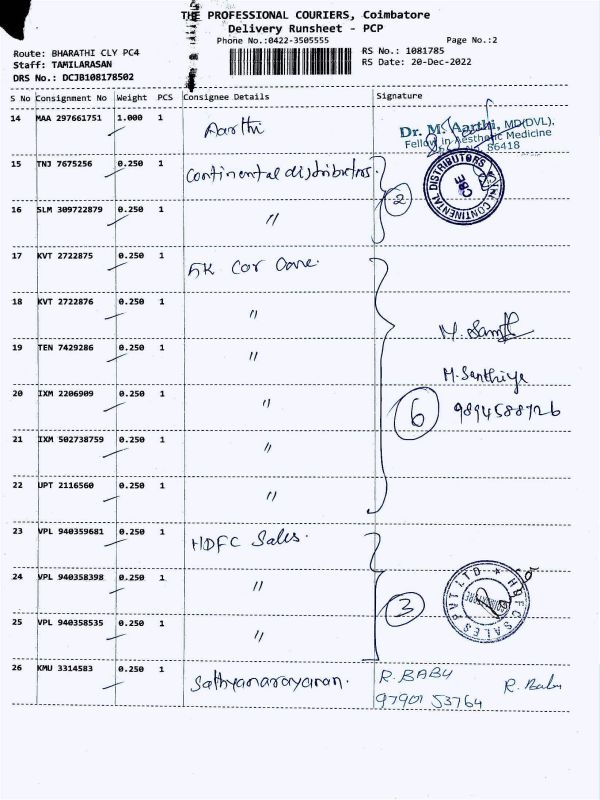 THE PROFESSIONAL COURIERS, Coimbatore
Delivery Runsheet - PCP
Phone No.:0422-3505555
Page No.:2
Route: BHARATHI CLY PC4
RS No.: 1081785
Staff: TAMILARASAN
RS Date: 20-Dec-2022
DRS No.: DCJB108178502
S No Consignment No Weight PCS Consignee Details Signature
14 MAA 297661751 1.000 1 Aarthi
Dr. M. Aarthi, MD(DVL),
Fellow in Aesthetic Medicine
86418
15 TNJ 7675256 0.250 1 Continental distributors.
2
THE CONTINENTAL DISTRIBUTORS
CBE
16 SLM 309722879 0.250 1 "
17 KVT 2722875 0.250 1 SK Car Care.
18 KVT 2722876 0.250 1 "
19 TEN 7429286 0.250 1 "
M. Santhiya
20 IXM 2206909 0.250 1 "
6 9894588726
21 IXM 502738759 0.250 1 "
22 UPT 2116560 0.250 1 "
23 VPL 940359681 0.250 1 HDFC Sales.
24 VPL 940358398 0.250 1 "
3
HDFC SALES PVT LTD
COIMBATORE
25 VPL 940358535 0.250 1 "
26 KMU 3314583 0.250 1 Sathyanarayanan.
R. BABU
R. Babu
97901 53764